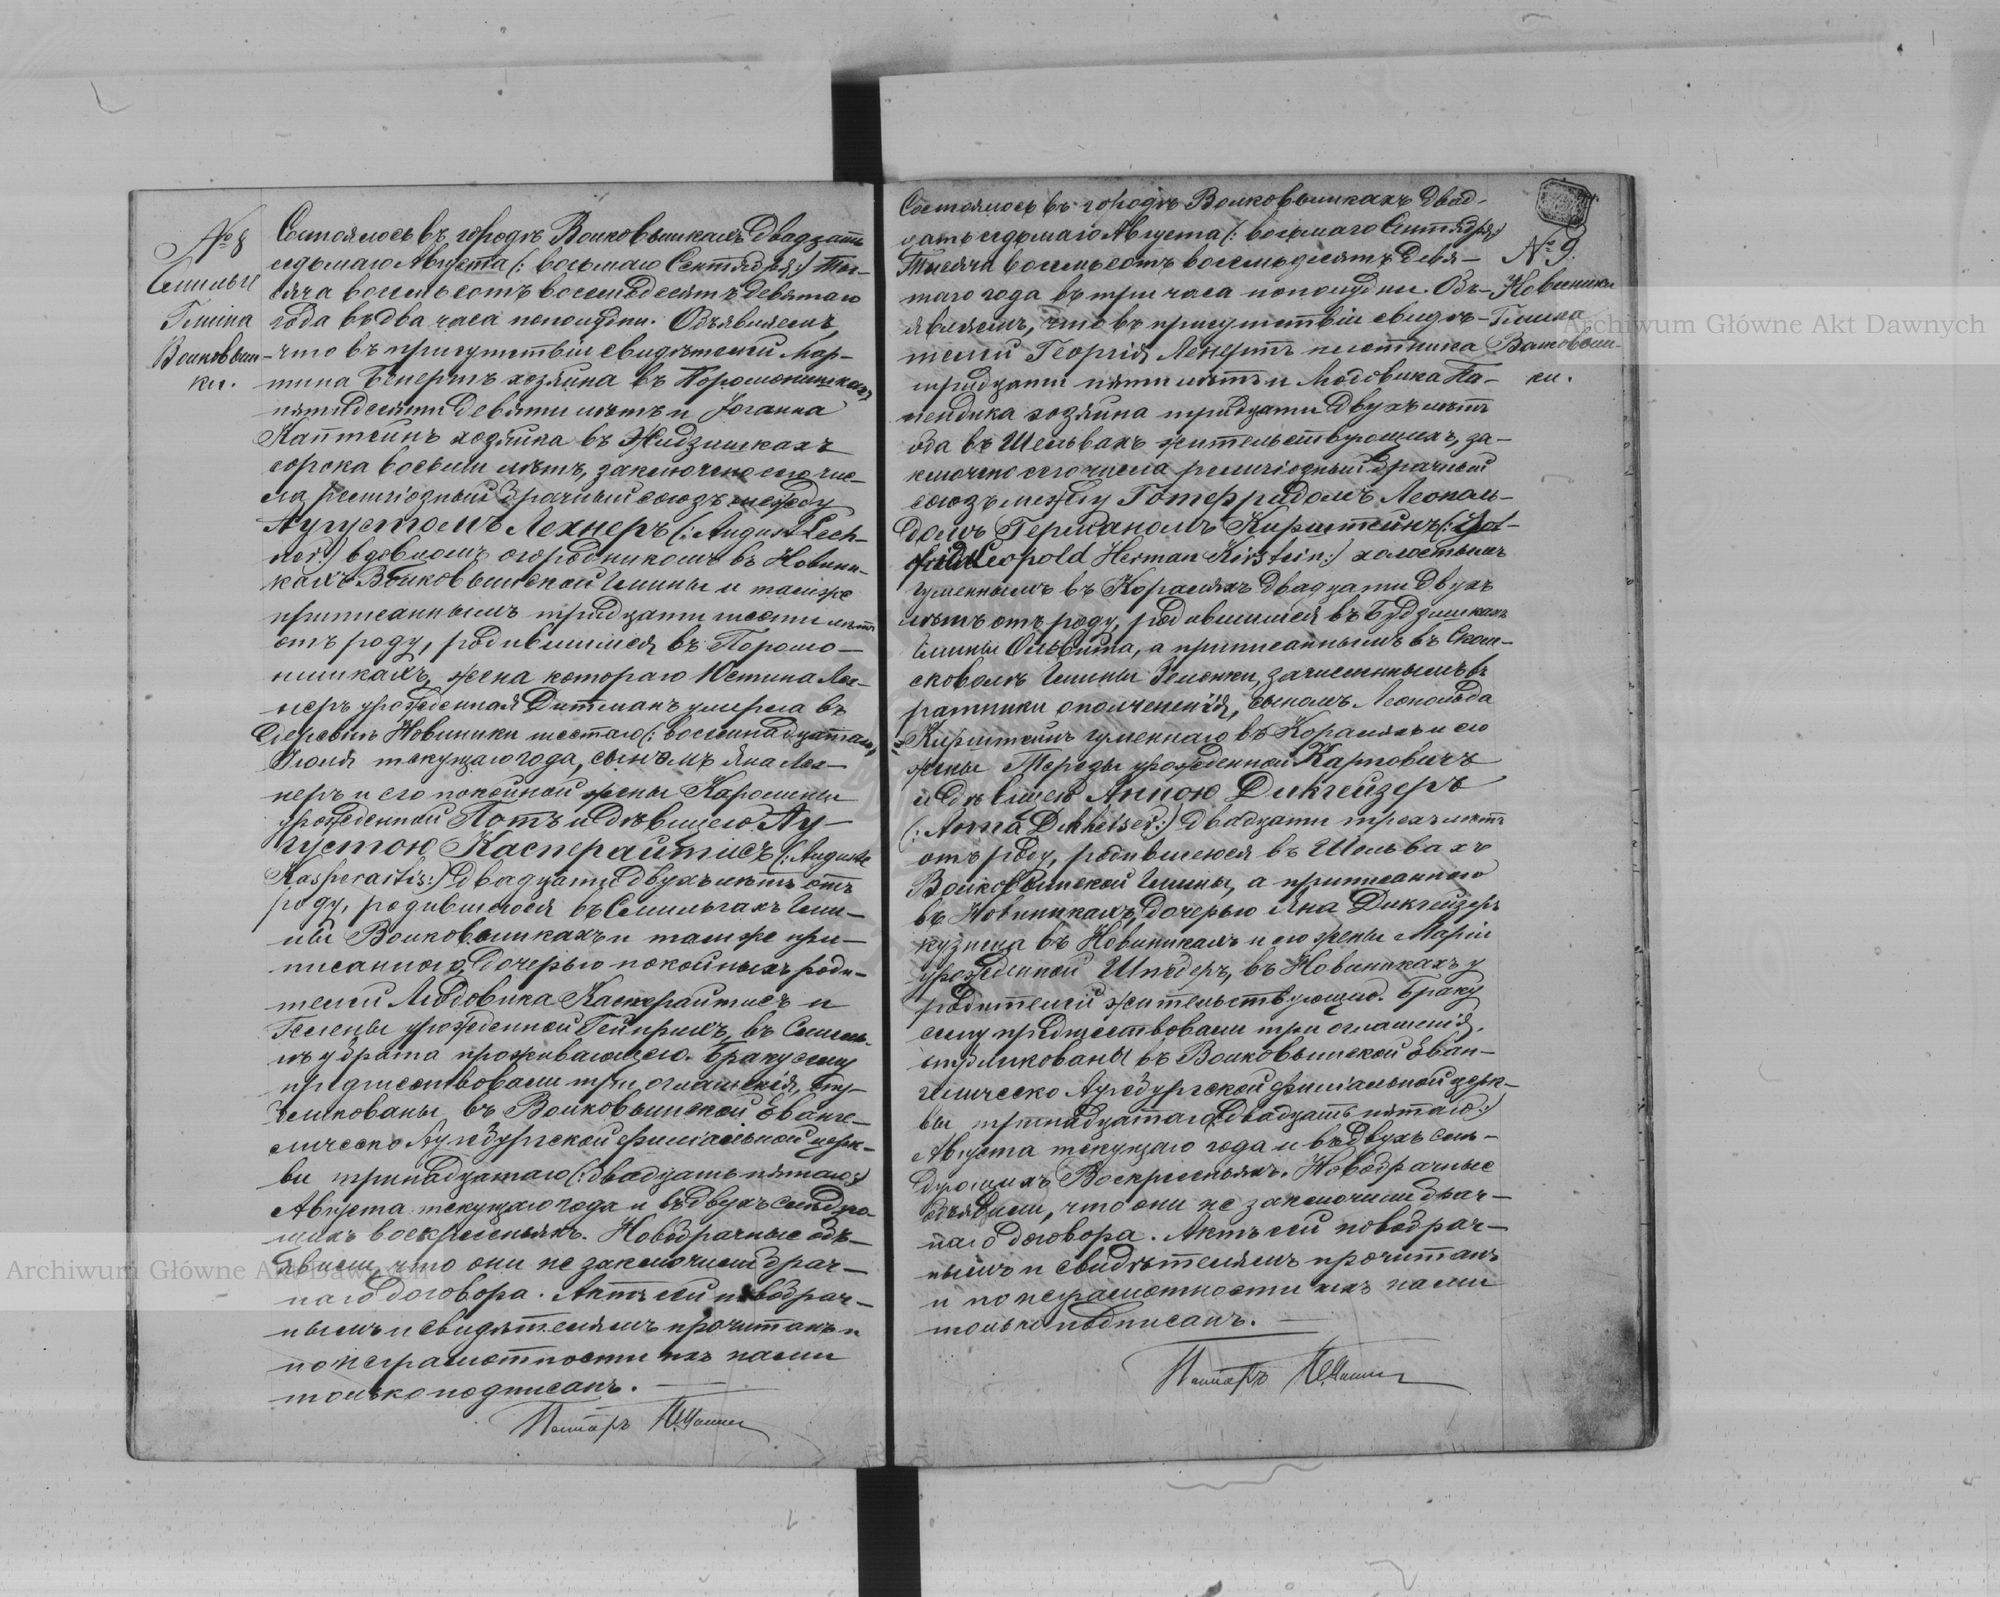 № 8
Гмина
Волковыш-
ки.
Состоялось въ городѣ Волковышкахъ двадцать
седьмаго Августа (: восьмаго Сентября:) Ты-
сяча восемьсотъ восемьдесятъ девятаго
года въ два часа пополудни. Объявляемъ,
что въ присутствіи свидѣтелей Мар-
тина хозяина въ
пятидесяти девяти лѣтъ и Іоганна
хозяина въ
сорока восьми лѣтъ, заключено сего чис-
ла религіозный брачный союзъ между
Августомъ Лехнеръ (: August Lech-
ner:) вдовцомъ огородникомъ въ Новини-
кахъ Волковышской гмины и тамже
приписаннымъ тридцати шести лѣтъ
отъ роду, родившимся въ Поромо-
нишкахъ, жена котораго Юстина Лех-
неръ урожденная Дитманъ умерла въ
деревнѣ Новиники шестаго (: восемнадцатаго
Іюля текущаго года, сыномъ Яна Лех-
неръ и его покойной жены Каролины
урожденной Потъ и дѣвицею Ав-
густою Касперайтисъ (: Auguste
Kasperaitis:) двадцати двухъ лѣтъ отъ
роду, родившеюся въ гми-
ны Волковышкахъ и тамже при-
писанною, дочерью покойныхъ роди-
телей Людовика Касперайтисъ и
Гелены урожденной Гейнрихъ, въ
у брата проживающею. Браку сему
предшествовали три оглашенія, опу-
бликованы въ Волковышской Еванге-
лическо Аугсбургской филіальной церк-
ви тринадцатаго (: двадцать пятаго:)
Августа текущаго года и въ двухъ слѣдую-
щихъ воскресеньяхъ. Новобрачные объ-
явили, что они не заключили брач-
наго договора. Актъ сей новобрач-
нымъ и свидѣтелямъ прочитанъ и
по неграмотности ихъ нами
только подписанъ. —
Пасторъ
Состоялось въ городѣ Волковышкахъ двад-
цать седьмаго Августа (: восьмаго Сентября:)
Тысяча восемьсотъ восемьдесятъ девя-
таго года въ три часа пополудни. Объ-
являемъ, что въ присутствіи свидѣ-
телей Георгія Ленертъ плотника
тридцати пяти лѣтъ и Людовика Па-
пендика хозяина тридцати двухъ лѣтъ
оба въ Шельвахъ жительствующихъ, за-
ключено сего числа религіозный брачный
союзъ между Готфридомъ Леополь-
домъ Германомъ Кирштейнъ (: Got-
fried Leopold Herman Kirstein:) холостымъ
гуменнымъ въ Коралахъ двадцати двухъ
лѣтъ отъ роду, родившимся въ Будзишкахъ
гмины Ольвита, а приписаннымъ въ
гмины Зеленки, зачисленнымъ въ
ратники ополченія, сыномъ Леопольда
Кирштейнъ гуменнаго въ Коралахъ и его
жены Терезы урожденной Карповичъ
и дѣвицею Анною Дикгейзеръ
(: Anna Dikheiser:) двадцати трехъ лѣтъ
отъ роду, родившеюся въ Шельвахъ
Волковышской гмины, а приписанною
въ Новиникахъ, дочерью Яна Дикгейзеръ
кузнеца въ Новиникахъ и его жены Маріи
урожденной въ Новиникахъ у
родителей жительствующею. Браку
сему предшествовали три оглашенія,
опубликованы въ Волковышской Еван-
гелическо Аугсбургской филіальной церк-
вы тринадцатаго (: двадцать пятаго:)
Августа текущаго года и въ двухъ слѣ-
дующихъ Воскресеньяхъ. Новобрачные
объявили, что они не заключили брач-
наго договора. Актъ сей новобрач-
нымъ и свидѣтелямъ прочитанъ
и по неграмотности ихъ нами
только подписанъ. —
Пасторъ
№ 9.
Новиники
Гмина
Волковыш-
ки.
Archiwum Główne Akt Dawnych
Archiwum Główne Akt Dawnych